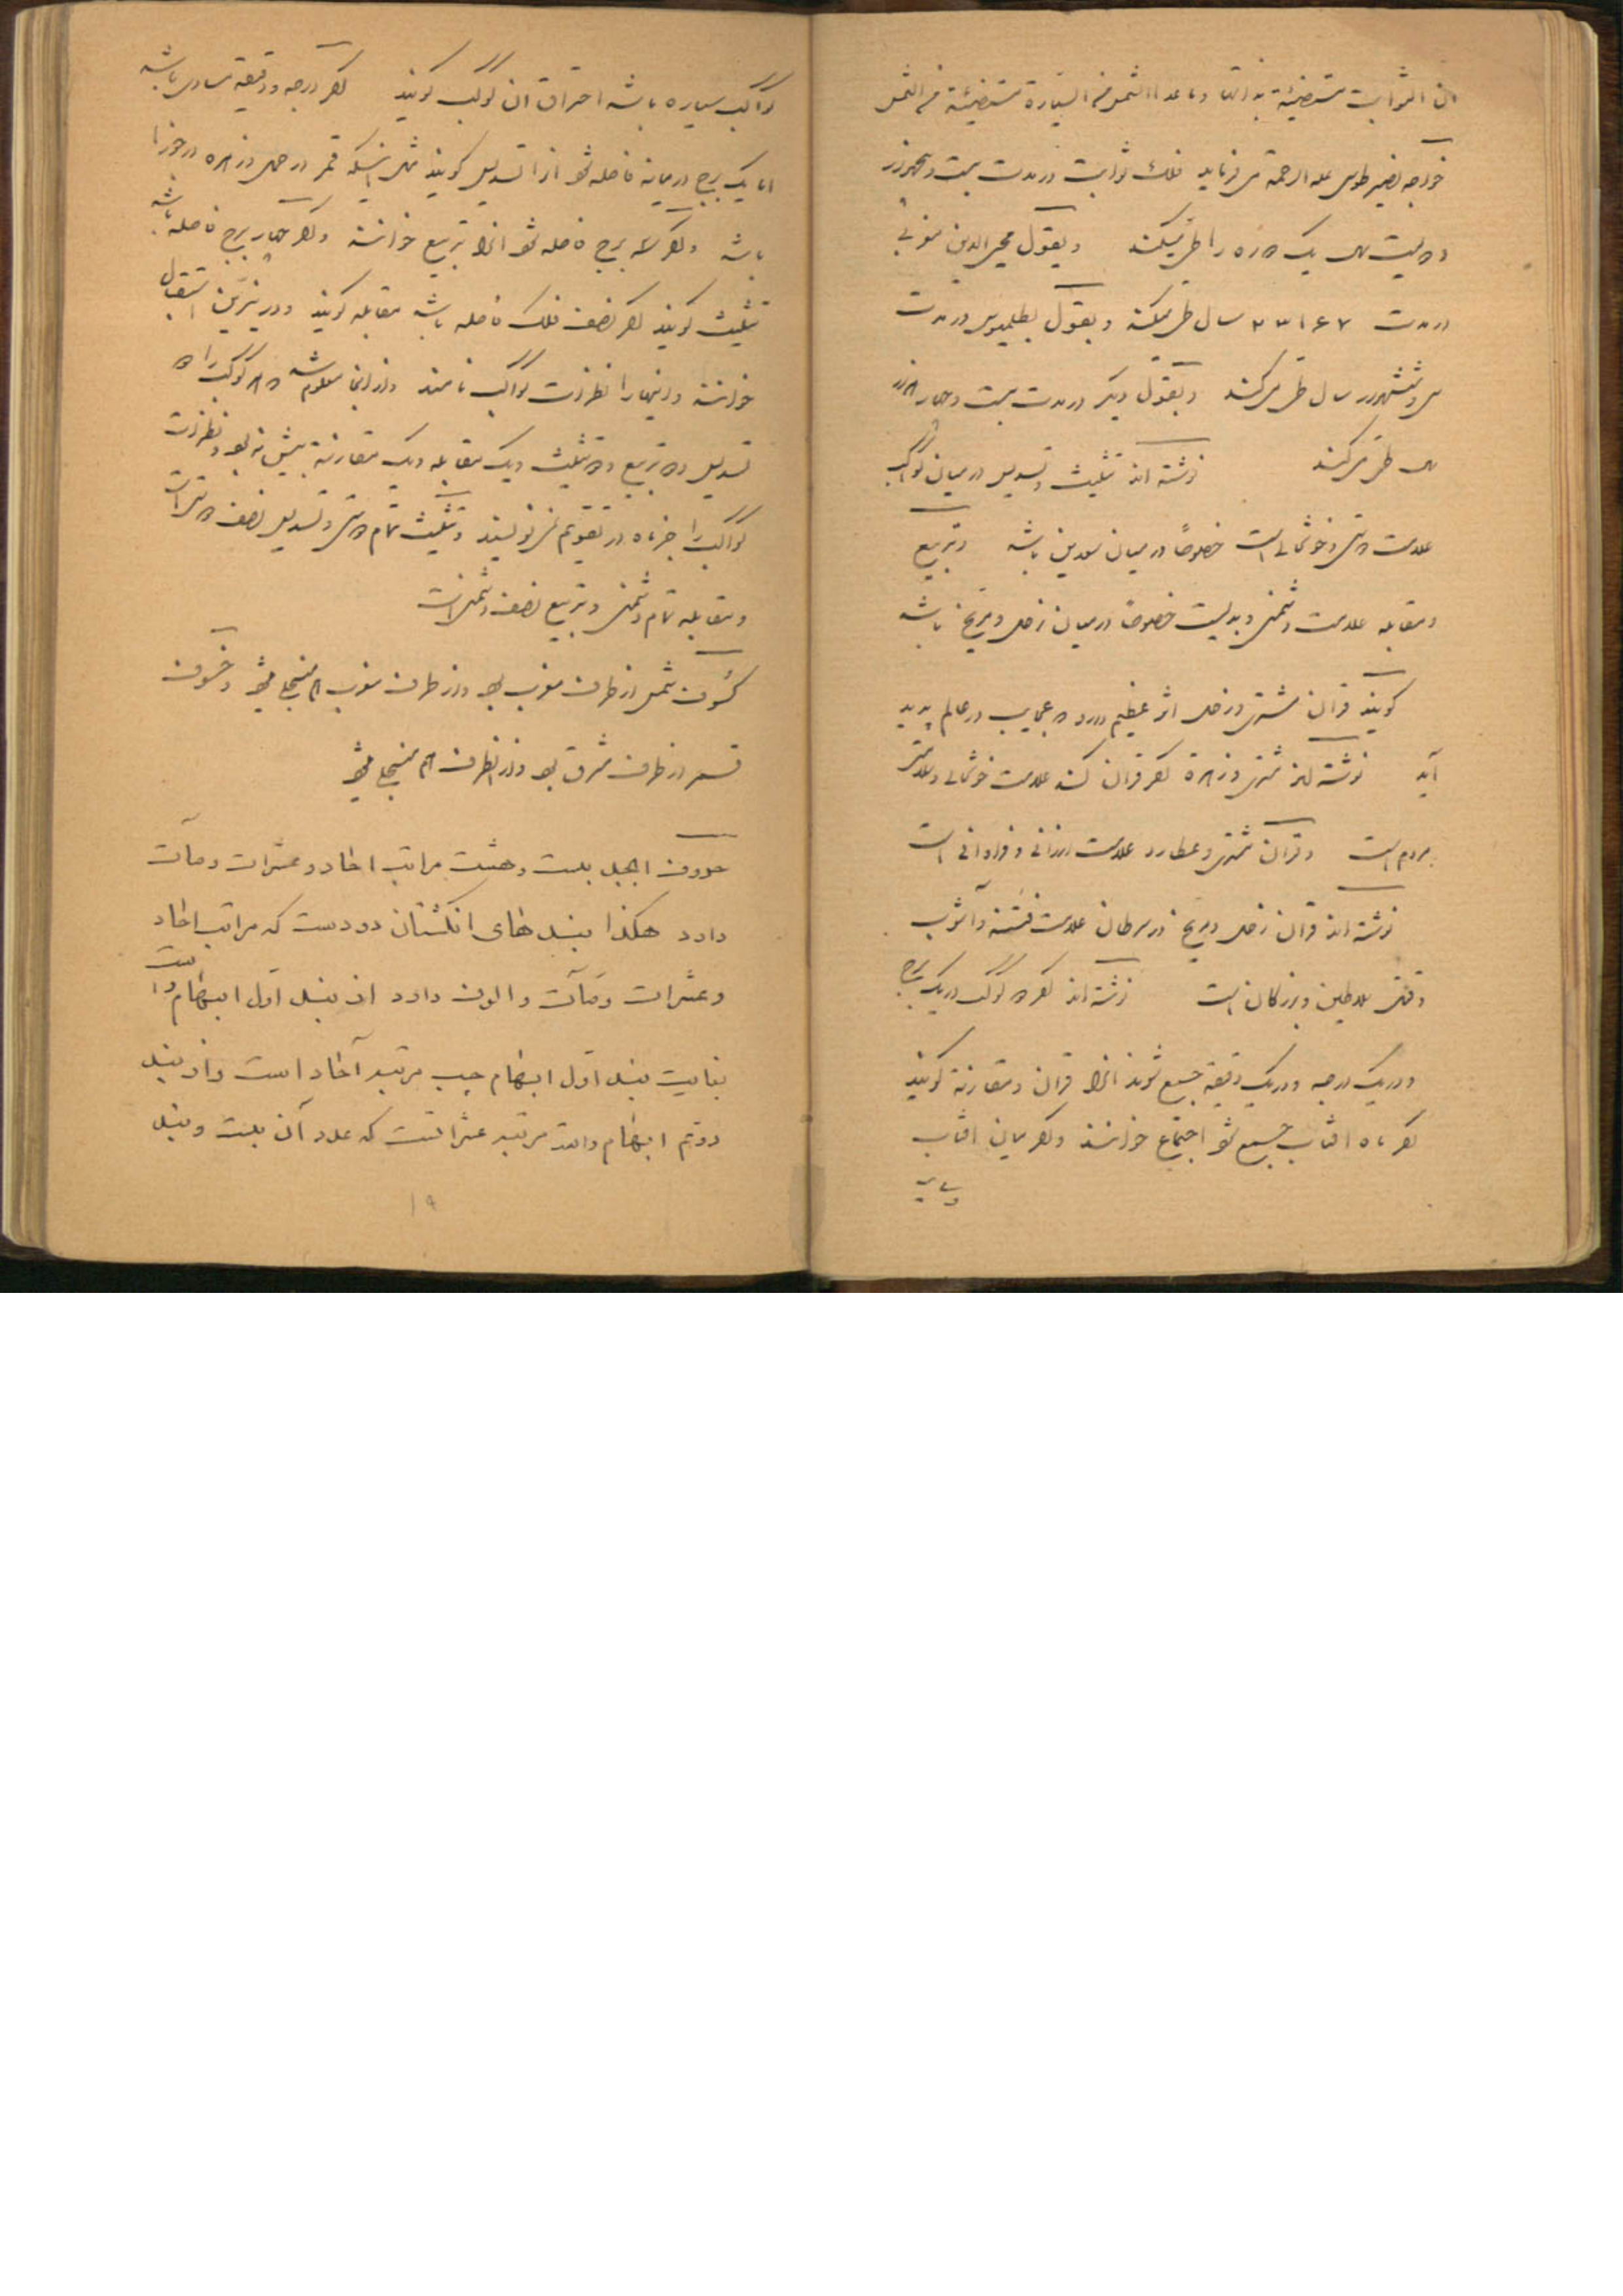 ان الثوابت مستضیئة بذاتها وماعدا الشمس من السیارة مستضیئة من الشمس
خواجه نصیر طوسی علیه الرحمة می‌فرماید فلک ثوابت در مدت بیست و پنجهزار
و دویست سال یک دوره را طی میکند وبقول محیی الدین مغربی
در مدت ۲۳۱۶۷ سال طی میکند وبقول بطلمیوس در مدت
سی وششهزار سال طی میکند وبقول دیگر در مدت بیست وچهار هزار
سال طی میکند نوشته اند تثلیث وتسدیس در میان کواکب
علامت دوستی وخوشحالی است خصوصاً در میان سعدین باشد وتربیع
ومقابله علامت دشمنی وبدیست خصوصاً در میان زحل ومریخ باشد
گویند قران مشتری وزحل اثر عظیم دارد و عجایب در عالم پدید
آید نوشته اند مشتری وزهرة اگر قران کند علامت خوشحالی وسلامتی
مردم است وقران مشتری وعطارد علامت ارزانی وفراوانی است
نوشته اند قران زحل ومریخ در سرطان علامت فتنه وآشوب
وقتل سلاطین وبزرگان است نوشته اند اگر دو کوکب در یک برج
ودر یک درجه ودر یک دقیقه جمع شوند انرا قران ومقارنة گویند
اگر ماه افتاب جمع شود اجتماع خوانند واگر میان افتاب
کواکب سیاره باشد احتراق ان کوکب گویند اگر درجه ودقیقه مساوی باشد
اما یک برج در میانه فاصله شود انرا تسدیس گویند مثل اینکه قمر در حمل وزهره در جوزا
باشد واگر سه برج فاصله شود انرا تربیع خوانند واگر چهار برج فاصله باشد
تثلیث گویند اگر نصف فلک فاصله باشد مقابله گویند ودر نیرین استقبال
خوانند واینها را نظرات کواکب نامند واز اینجا معلوم شد هر کوکب را دو
تسدیس و دو تربیع و دو تثلیث ویک مقابله ویک مقارنة بیش نبود ونظرات
کواکب را جز ماه در تقویم نمی‌نویسند وتثلیث تمام دوستی وتسدیس نصف دوستی است
ومقابله تمام دشمنی وتربیع نصف دشمنی است
کسوف شمس از طرف مغرب بود واز طرف مغرب هم منجلی میشود وخسوف
قمر از طرف مشرق بود واز انطرف هم منجلی میشود
حروف ابجد بیست وهشت مراتب احاد وعشرات ومآت
دارد هکذا بندهای انگشتان دو دست که مراتب احاد
وعشرات ومآت والوف دارد از بند اول ابهام راست
بغایت بند اول ابهام چپ مرتبه آحاد است واز بند
دویم ابهام راست مرتبه عشراتست که عدد آن بیست وبند
۱۹